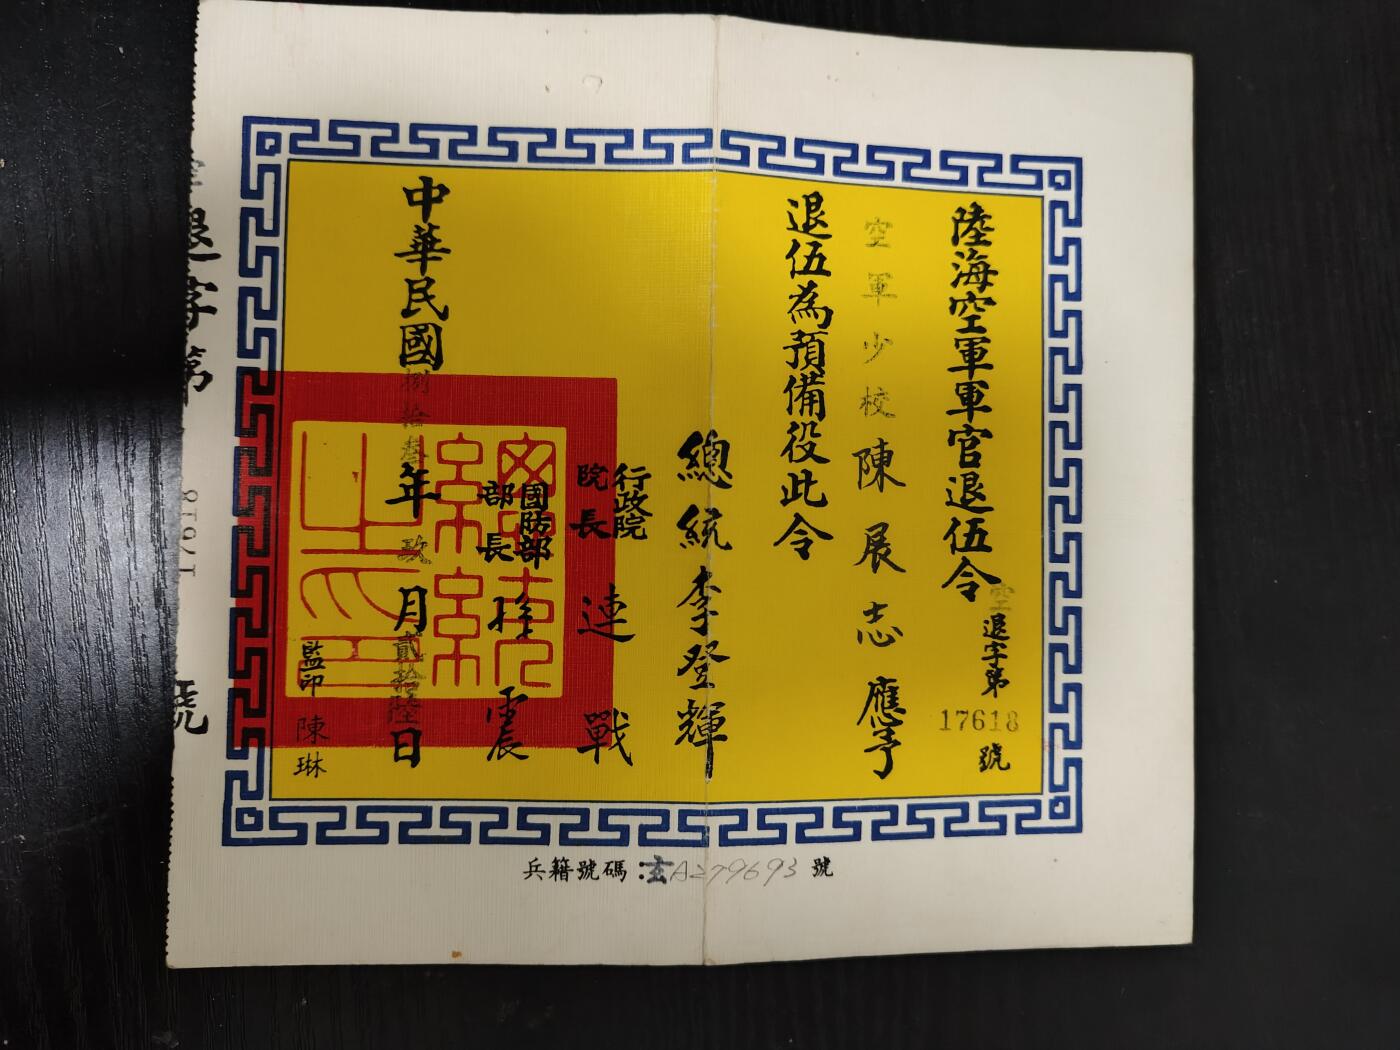 陸海空軍軍官退伍令
空退字第
17618
號
空軍少校陳展志應予
退伍為預備役此令
總統李登輝
行政院
院長
連戰
國防部
部長
孫震
中華民國捌拾叁年玖月貳拾陸日
監印
陳琳
總統之印
兵籍號碼:玄A279693號
退字第
17618
號